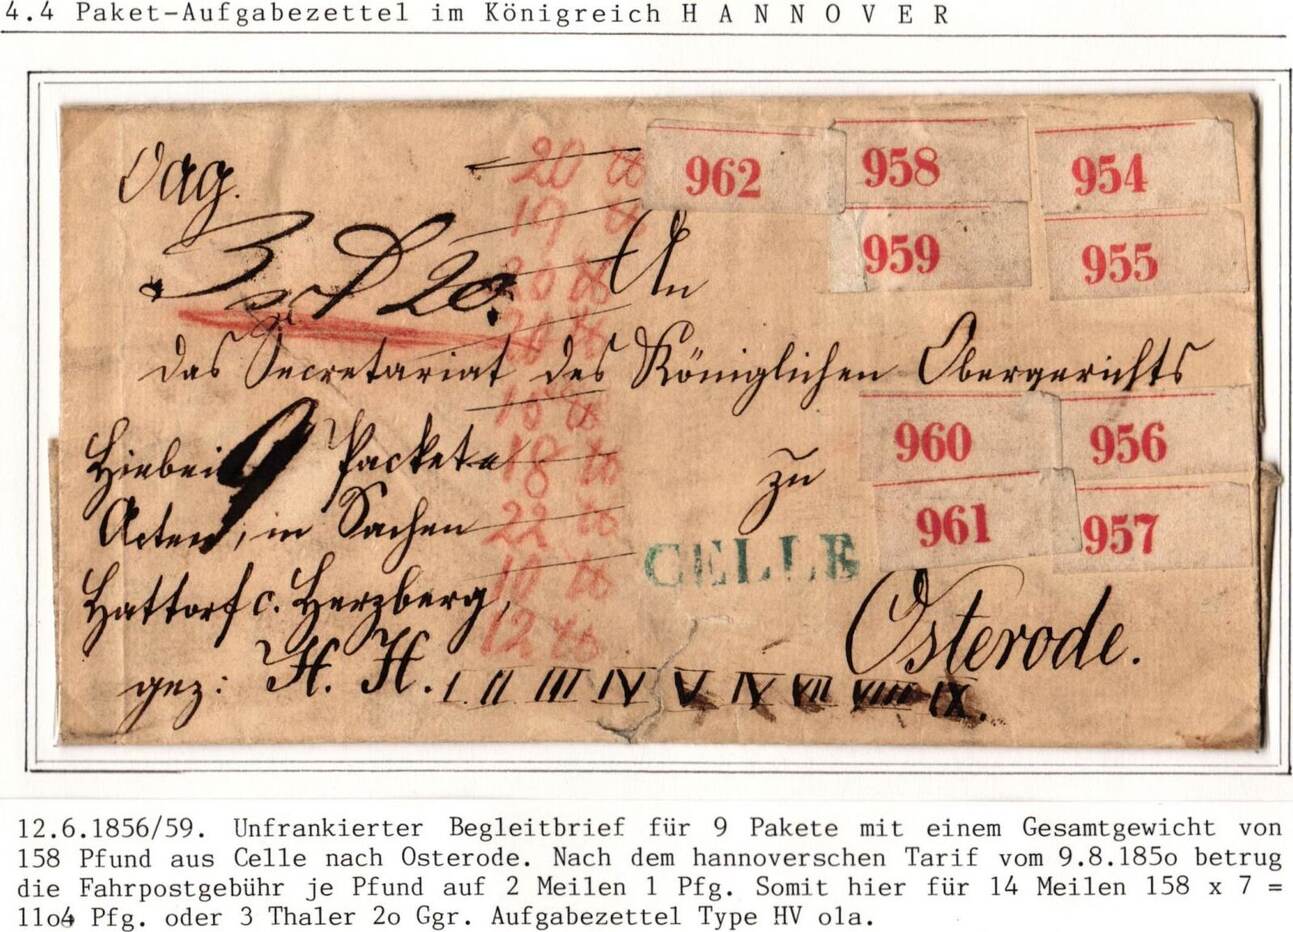 4.4 Paket-Aufgabezettel im Königreich H A N N O V E R
962 958 954
959 955
3 20.
An
das Secretariat des Königlichen Obergerichts
zu
Osterode.
Hiebei 9 Packete
Acten, in Sachen
Hattorf c. Herzberg,
gez: H. H. I II III IV V IV VII VIII IX.
20
19
20
20
18
22
10
12
960 956
961 957
CELLE
12.6.1856/59. Unfrankierter Begleitbrief für 9 Pakete mit einem Gesamtgewicht von
158 Pfund aus Celle nach Osterode. Nach dem hannoverschen Tarif vom 9.8.185o betrug
die Fahrpostgebühr je Pfund auf 2 Meilen 1 Pfg. Somit hier für 14 Meilen 158 x 7 =
11o4 Pfg. oder 3 Thaler 2o Ggr. Aufgabezettel Type HV o1a.